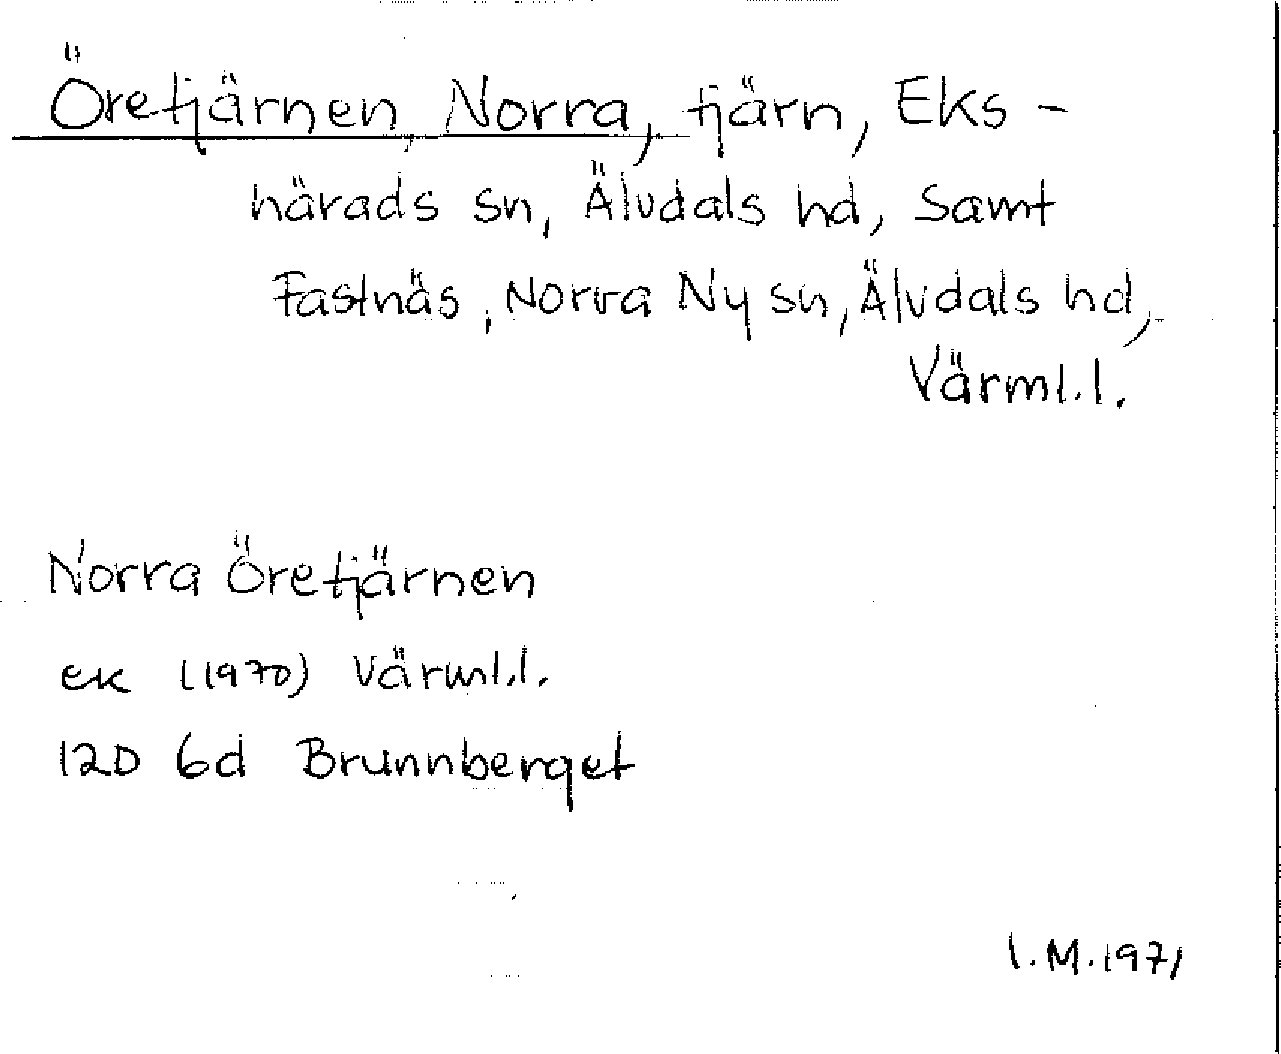 Öretjärnen, Norra, tjärn, Eks-
härads sn, Älvdals hd, samt
Fastnäs, Norra Ny sn, Älvdals hd,
Värml.l.
Norra Öretjärnen
ek (1970) Värml.l.
12D 6d Brunnberget
I.M.1971